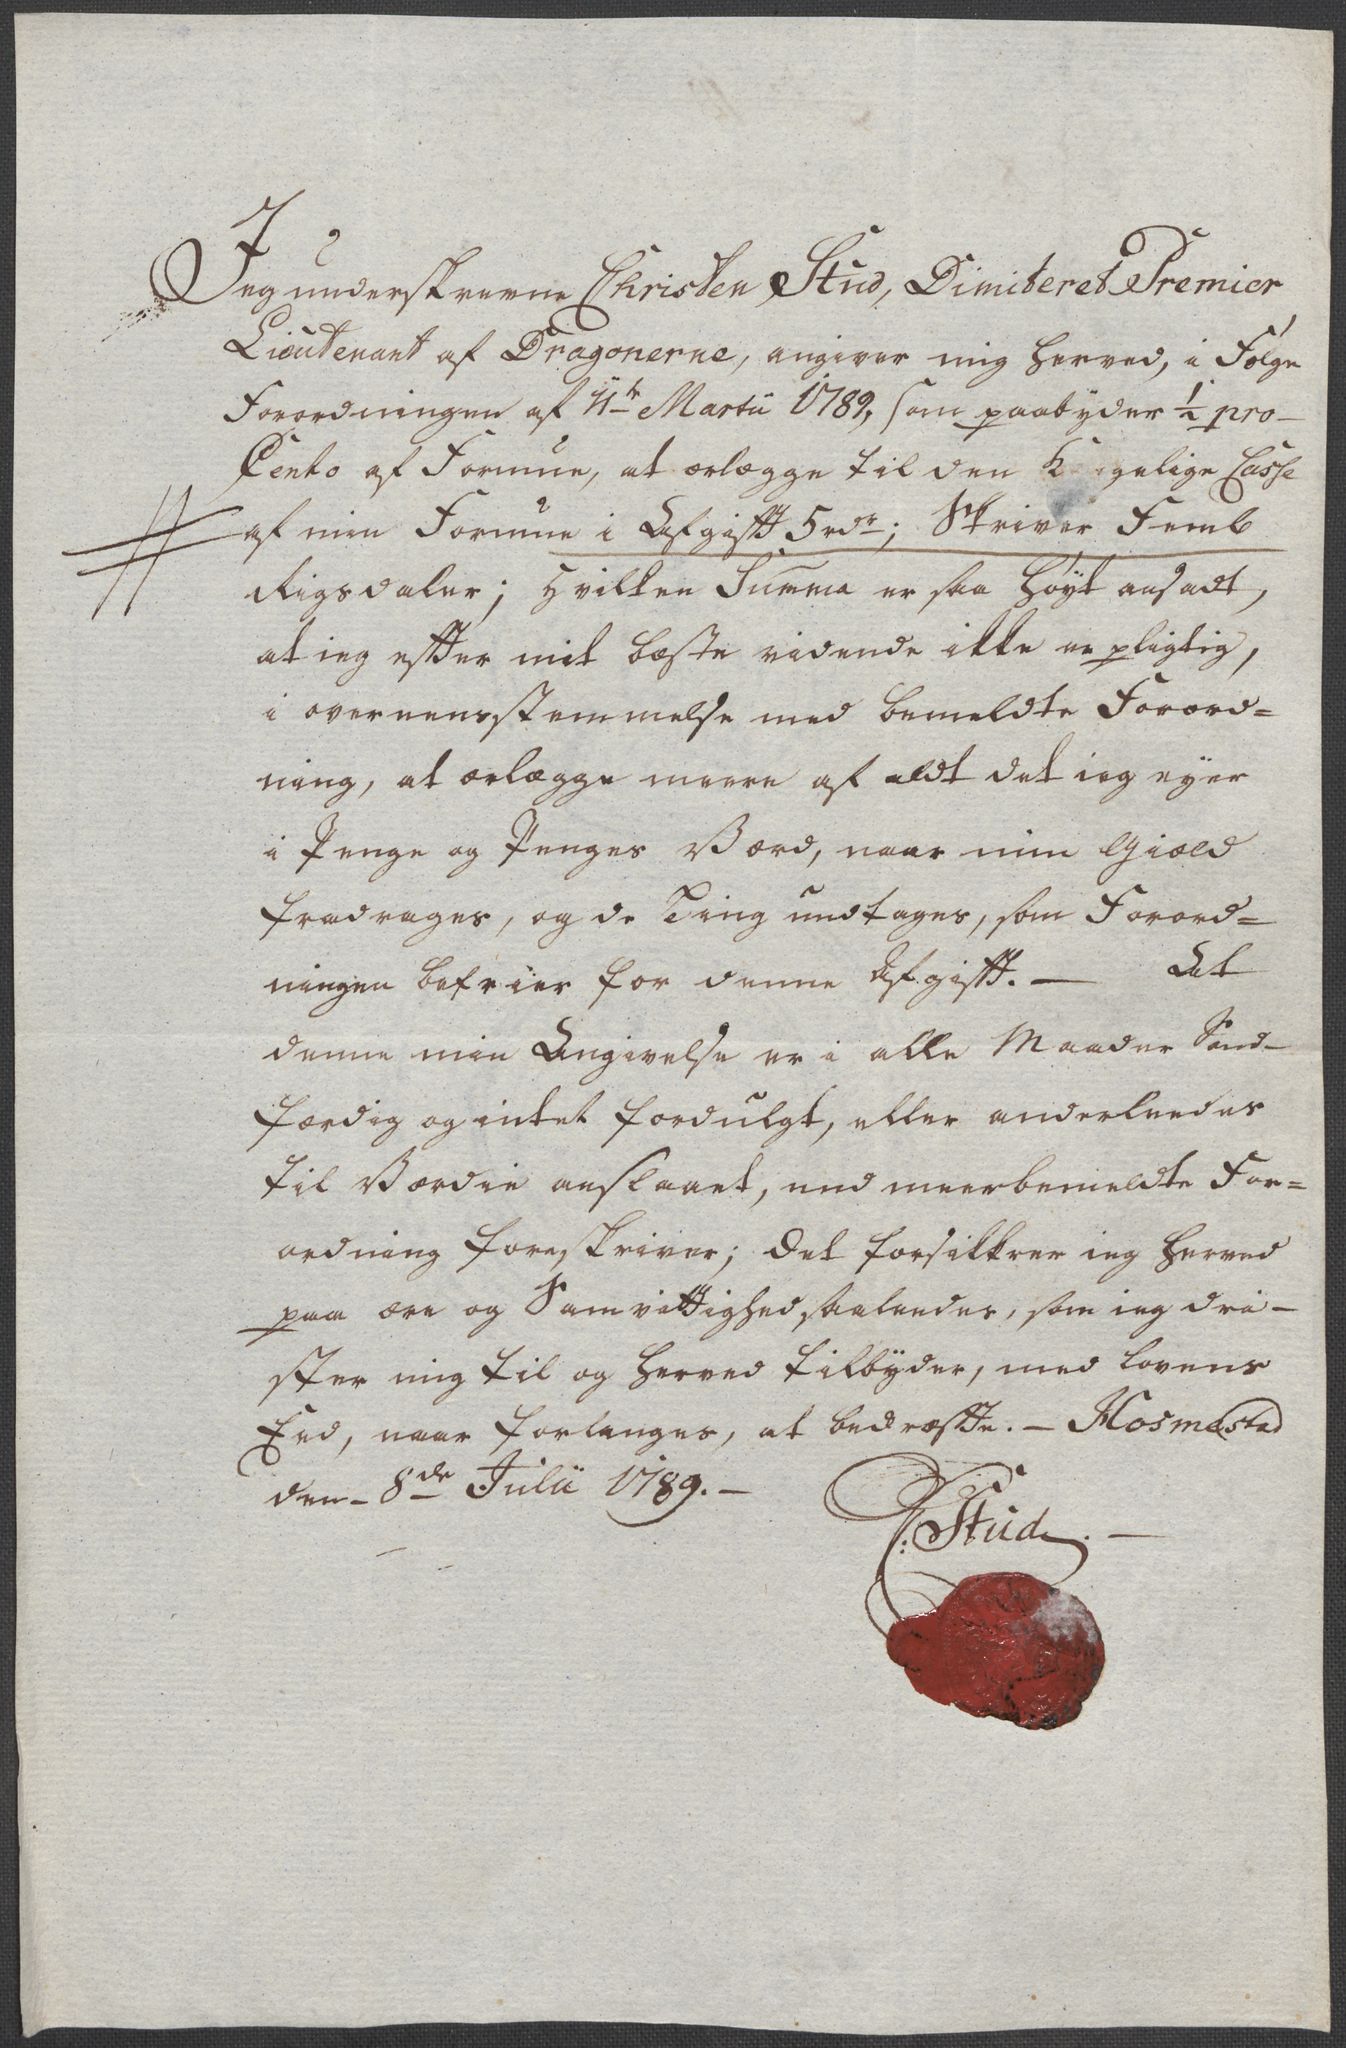 Jeg underskrevne Christen Stud, Dimiteret Premier
Lieutenant af Dragonerne, angiver mig herved, i Følge
Forordningen af 11te Martii 1789, som paabyder ½ pro-
Cento af Formue, at erlægge til den K gelige Casse
af min Formue i Afgift 5 rdr; Skriver Femb
Rigsdaler; hvilken Summa er saa høyt ansadt,
at ieg efter mit bæste vidende ikke er pligtig,
i overeensstemmelse med bemeldte Forord=
ning, at erlægge meere af aldt det ieg eyer
i Penge og Penges Værd, naar min Giæld
fradrages, og de Ting undtages, som Forord=
ningen befrier for denne Afgift. — At
denne min Angivelse er i alle Maader Sand-
færdig og intet fordulgt, eller anderleedes
til Værdie anslaaet, end meerbemeldte For=
ordning foreskriver; Det forsikkrer ieg herved
paa ære og Samvittighed saaleedes, som ieg dri-
ster mig til og herved tilbyder, med lovens
Eed, naar forlanges, at bekræfte. — Hosmestad
den - 8de Julii 1789. —
C: Stud. —